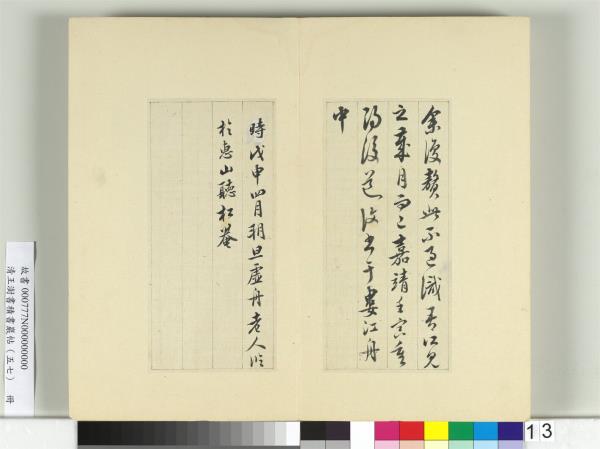 余復贅此不過識吾所見
之歲月而已嘉靖壬寅重
陽後書于婁江舟
中
時戊申四月朔旦虛舟老人臨
於惠山聽松菴
故書 000777N000000000
清王澍書積書巖帖（五七） 冊
13